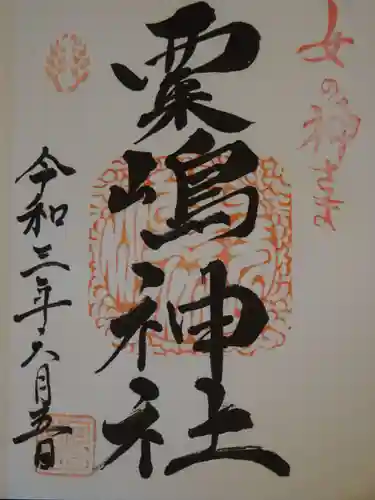 女の神さま
粟嶋神社
令和三年六月五日